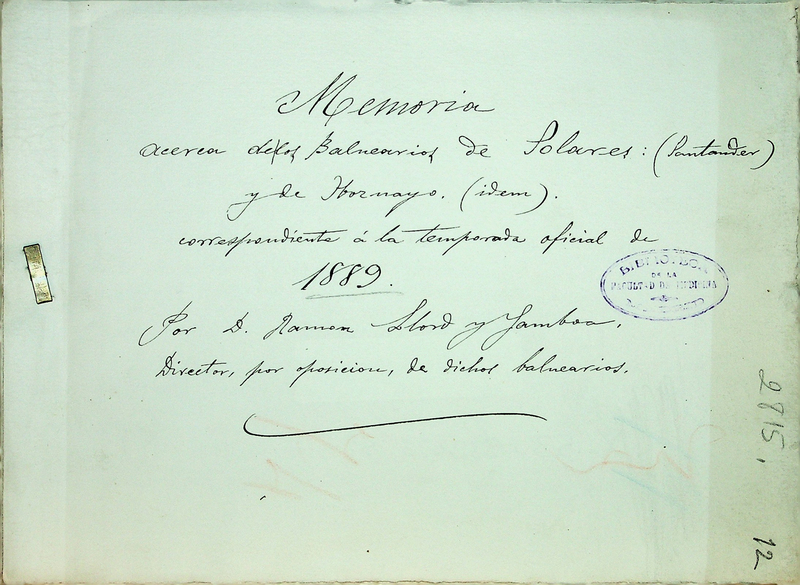 Memoria
acerca de los Balnearios de Solares: (Santander)
y de Hornayo. (idem).
correspondiente á la temporada oficial de
1889.
Por D. Ramon Llord y Gamboa,
Director, por oposicion, de dichos balnearios.
BIBLIOTECA
DE LA
FACULTAD DE MEDICINA
2815.
12